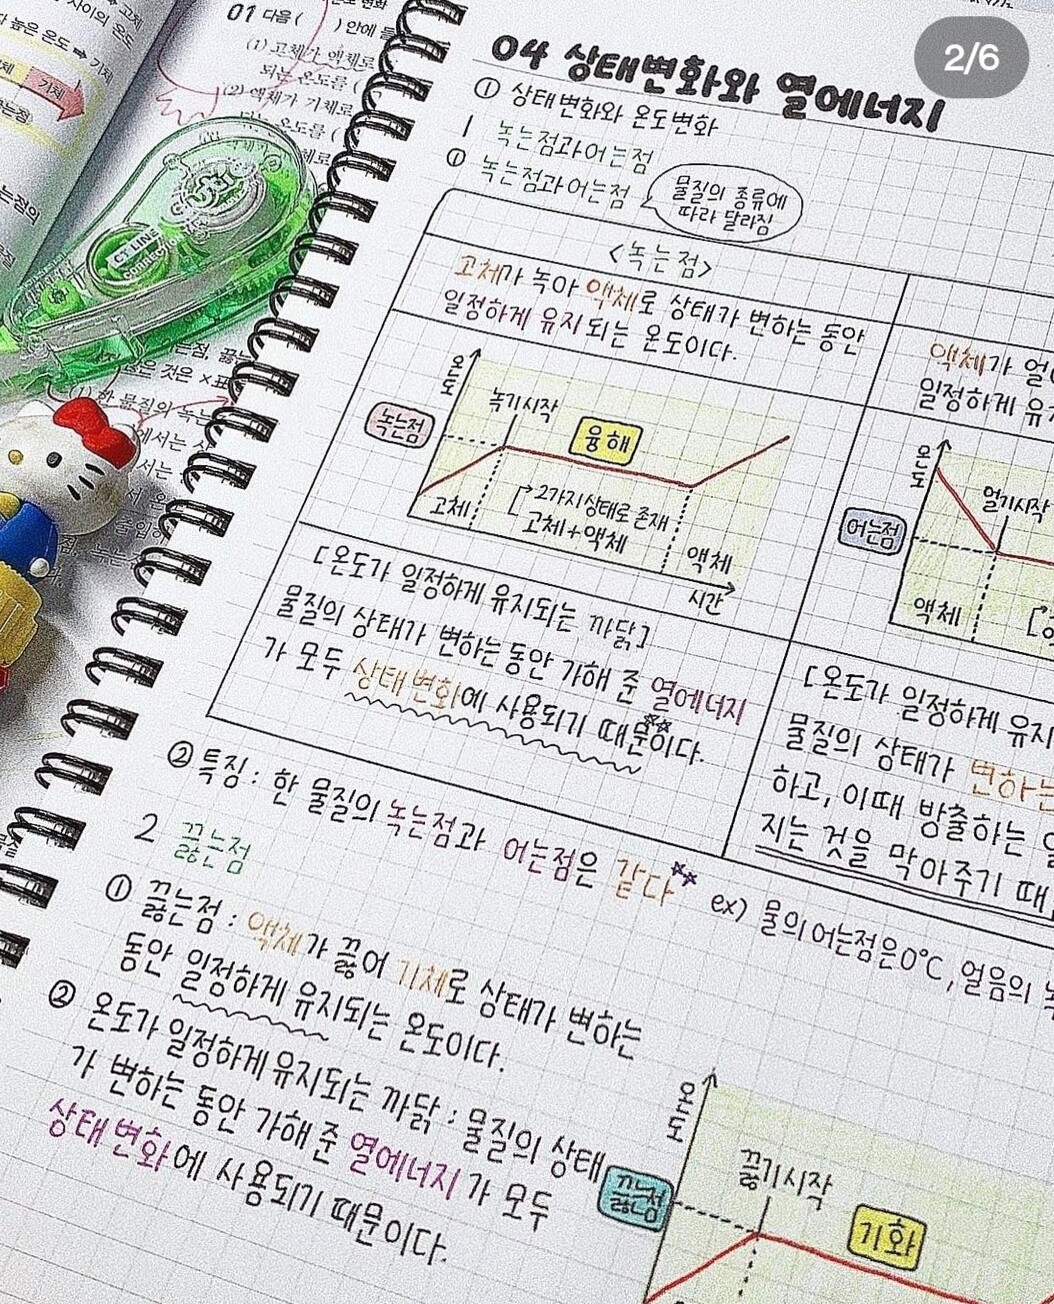 2/6
01 다음 ( )안에
(1) 고체가 액체로
되는 온도를 (
(2) 액체가 기체로
는 온도를 (
고체
사이의 온도
높은 온도 → 기체
기체
CT LINE
04 상태변화와 열에너지
① 상태변화와 온도변화
1 녹는점과어는점
① 녹는점과어는점
물질의 종류에
따라 달라짐
<녹는점>
고체가 녹아 액체로 상태가 변하는 동안
일정하게 유지되는 온도이다.
온도
녹는점
녹기시작
융해
고체
2가지상태로 존재
고체+액체
액체
시간
[온도가 일정하게 유지되는 까닭]
물질의 상태가 변하는 동안 가해 준 열에너지
가 모두 상태변화에 사용되기 때문이다.
액체가 얼
일정하게 유지
온도
어는점
얼기시작
액체
[온도가 일정하게 유지
물질의 상태가 변하는
하고, 이때 방출하는
지는 것을 막아주기 때
② 특징: 한 물질의 녹는점과 어는점은 같다 ex) 물의 어는점은0°C, 얼음의
2 끓는점
① 끓는점 : 액체가 끓어 기체로 상태가 변하는
동안 일정하게 유지되는 온도이다.
② 온도가 일정하게 유지되는 까닭 : 물질의 상태
가 변하는 동안 가해 준 열에너지가 모두
상태변화에 사용되기 때문이다.
온도
끓는점
끓기시작
기화